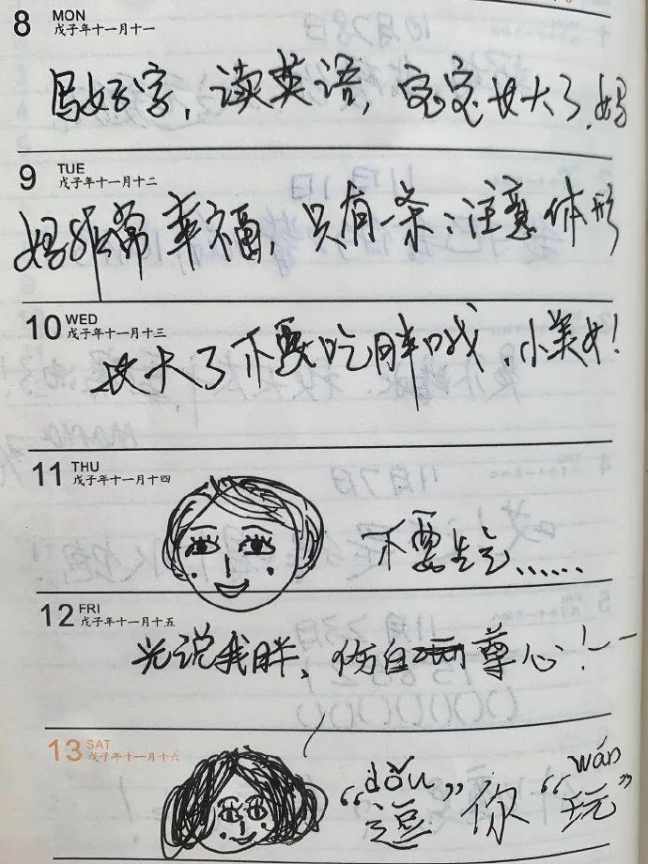 8 MON
戊子年十一月十一
写好字，读英语，宝宝长大了，妈
9 TUE
戊子年十一月十二
妈非常幸福，只有一条：注意体形
10 WED
戊子年十一月十三
长大了不要吃胖哦，小美女！
11 THU
戊子年十一月十四
不要生气……
12 FRI
戊子年十一月十五
光说我胖，伤自尊心！
13 SAT
戊子年十一月十六
dǒu wán
“逗”你“玩”